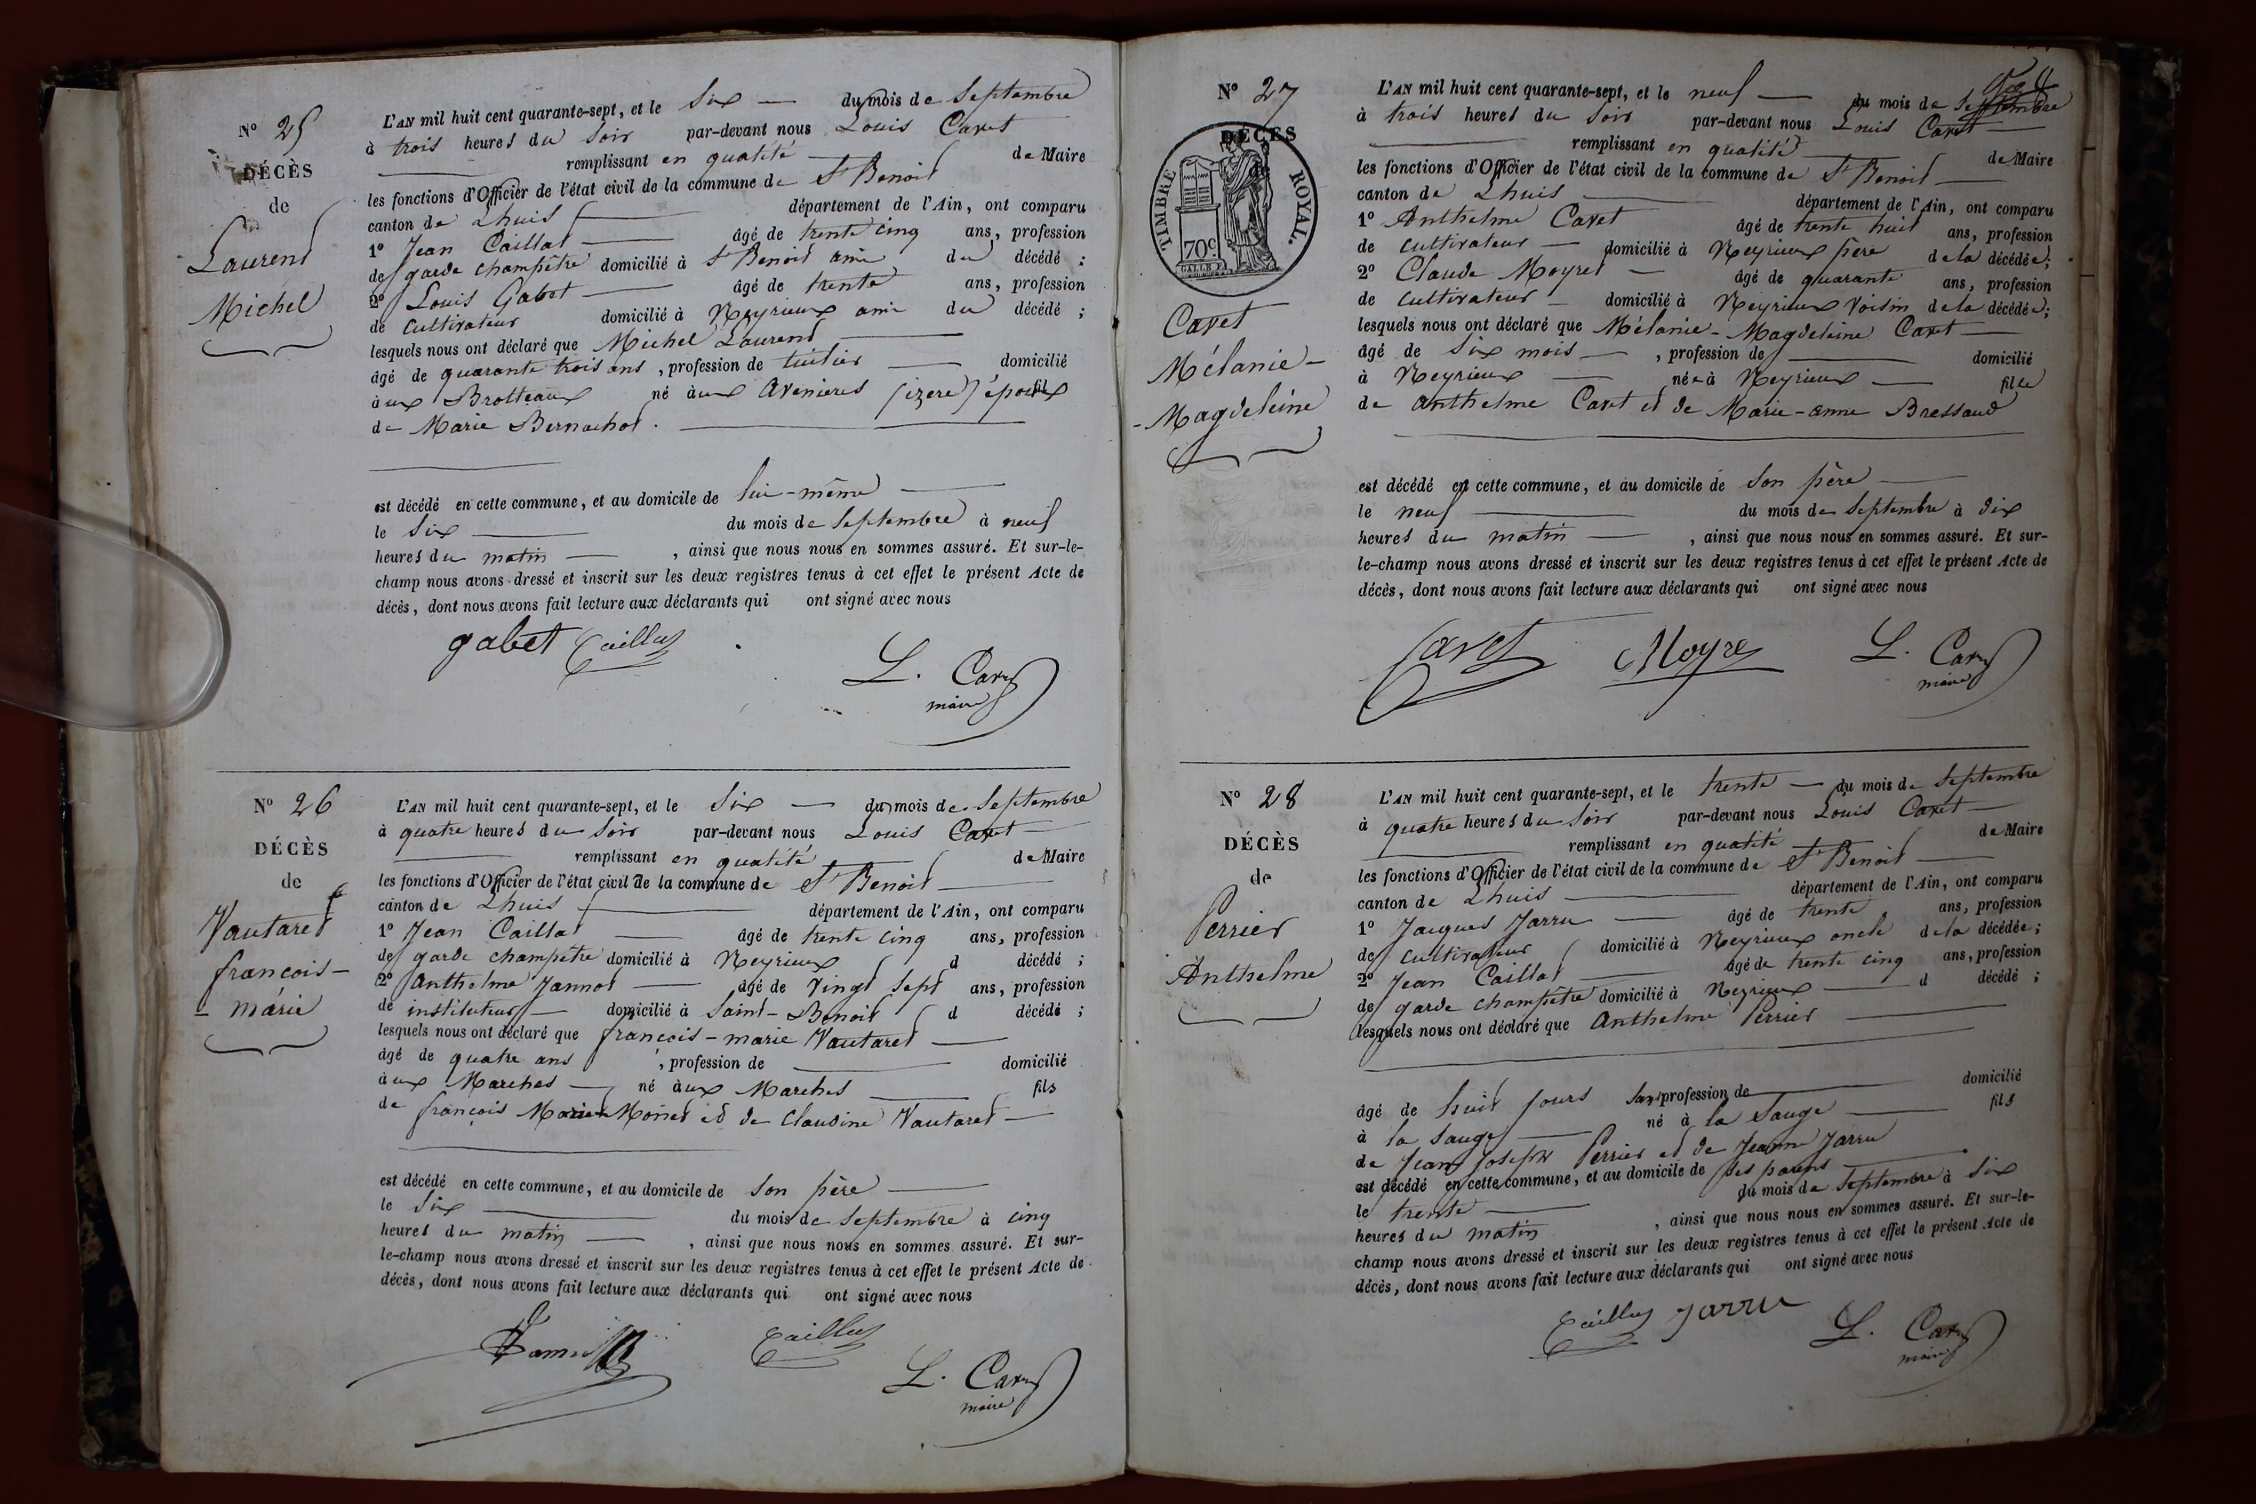 N° 25
DÉCÈS
de
Laurent
Michel
L'AN mil huit cent quarante-sept, et le Six — du mois de Septembre
à trois heures du Soir par-devant nous Louis Caret
remplissant en qualité de Maire
les fonctions d'Officier de l'état civil de la commune de St Benoit
canton de Lhuis département de l'Ain, ont comparu
1° Jean Caillat âgé de trente cinq ans, profession
de garde champêtre domicilié à St Benoit ami du décédé ;
2° Louis Gabet âgé de trente ans, profession
de cultivateur domicilié à Neyrieux ami du décédé ;
lesquels nous ont déclaré que Michel Laurent
âgé de quarante trois ans, profession de tuilier domicilié
aux Brotteaux né aux Avenieres (izere) époux
de Marie Bernachot.
est décédé en cette commune, et au domicile de lui-même
le Six du mois de Septembre à neuf
heures du matin, ainsi que nous nous en sommes assuré. Et sur-le-
champ nous avons dressé et inscrit sur les deux registres tenus à cet effet le présent Acte de
décès, dont nous avons fait lecture aux déclarants qui ont signé avec nous
gabet Caillat
L. Caret
maire
N° 26
DÉCÈS
de
Vautaret
francois-
-marie
L'AN mil huit cent quarante-sept, et le Six — du mois de Septembre
à quatre heures du Soir par-devant nous Louis Caret
remplissant en qualité de Maire
les fonctions d'Officier de l'état civil de la commune de St Benoit
canton de Lhuis département de l'Ain, ont comparu
1° Jean Caillat âgé de trente cinq ans, profession
de garde champêtre domicilié à Neyrieux d décédé ;
2° Anthelme Jannot âgé de Vingt Sept ans, profession
de instituteur domicilié à Saint-Benoit d décédé ;
lesquels nous ont déclaré que françois-marie Vautaret
âgé de quatre ans, profession de domicilié
aux Marches né aux Marches fils
de françois Marie Moiret et de Claudine Vautaret
est décédé en cette commune, et au domicile de Son père
le Six du mois de Septembre à cinq
heures du matin, ainsi que nous nous en sommes assuré. Et sur-
le-champ nous avons dressé et inscrit sur les deux registres tenus à cet effet le présent Acte de
décès, dont nous avons fait lecture aux déclarants qui ont signé avec nous
Caillat
L. Caret
maire
N° 27
DÉCÈS
de
TIMBRE ROYAL.
70c.
Caret
Mélanie-
-Magdeleine
L'AN mil huit cent quarante-sept, et le neuf — du mois de Septembre
à trois heures du Soir par-devant nous Louis Caret
remplissant en qualité de Maire
les fonctions d'Officier de l'état civil de la commune de St Benoit
canton de Lhuis département de l'Ain, ont comparu
1° Anthelme Caret âgé de trente huit ans, profession
de cultivateur domicilié à Neyrieux père de la décédée;
2° Claude Moyret âgé de quarante ans, profession
de cultivateur domicilié à Neyrieux Voisin de la décédée;
lesquels nous ont déclaré que Mélanie-Magdeleine Caret
âgé de Six mois, profession de domicilié
à Neyrieux née à Neyrieux fille
de Anthelme Caret et de Marie-anne Bressaud
est décédé en cette commune, et au domicile de Son père
le neuf du mois de Septembre à dix
heures du matin, ainsi que nous nous en sommes assuré. Et sur-
le-champ nous avons dressé et inscrit sur les deux registres tenus à cet effet le présent Acte de
décès, dont nous avons fait lecture aux déclarants qui ont signé avec nous
Caret Moyret
L. Caret
maire
N° 28
DÉCÈS
de
Perrier
Anthelme
L'AN mil huit cent quarante-sept, et le trente — du mois de Septembre
à quatre heures du Soir par-devant nous Louis Caret
remplissant en qualité de Maire
les fonctions d'Officier de l'état civil de la commune de St Benoit
canton de Lhuis département de l'Ain, ont comparu
1° Jacques Jarru âgé de trente ans, profession
de cultivateur domicilié à Neyrieux oncle de la décédée;
2° Jean Caillat âgé de trente cinq ans, profession
de garde champêtre domicilié à Neyrieux d décédé ;
lesquels nous ont déclaré que Anthelme Perrier
âgé de huit jours Sans profession de domicilié
à la Sauge né à la Sauge fils
de Jean Joseph Perrier et de Jeanne Jarru
est décédé en cette commune, et au domicile de Ses parens
le trente du mois de Septembre à Six
heures du matin, ainsi que nous nous en sommes assuré. Et sur-le-
champ nous avons dressé et inscrit sur les deux registres tenus à cet effet le présent Acte de
décès, dont nous avons fait lecture aux déclarants qui ont signé avec nous
Caillat Jarru
L. Caret
maire